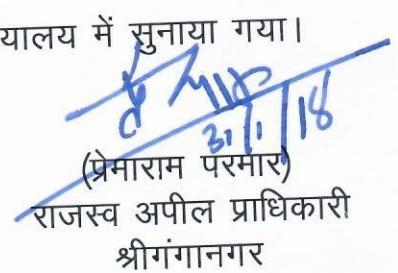 यालय में सुनाया गया।
31/1/18
(प्रेमाराम परमार)
राजस्व अपील प्राधिकारी
श्रीगंगानगर